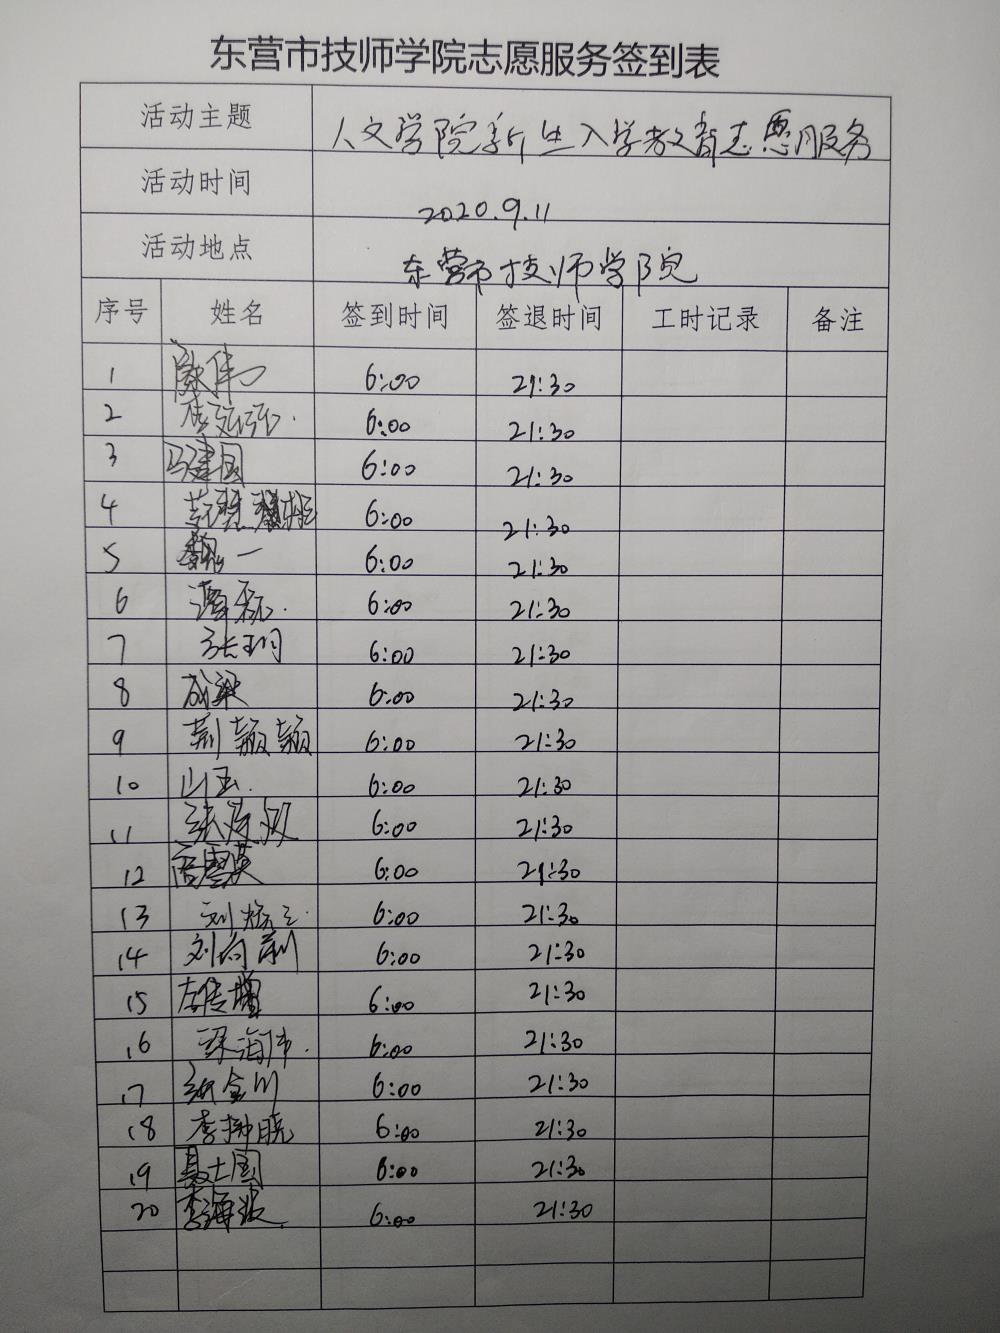 东营市技师学院志愿服务签到表
活动主题 人文学院新生入学教育志愿服务
活动时间 2020.9.11
活动地点 东营市技师学院
序号 姓名 签到时间 签退时间 工时记录 备注
1 伟 6:00 21:30
2 6:00 21:30
3 马建国 6:00 21:30
4 6:00 21:30
5 魏一 6:00 21:30
6 谭磊 6:00 21:30
7 张玥 6:00 21:30
8 成梁 6:00 21:30
9 荆颖颖 6:00 21:30
10 山玉 6:00 21:30
11 张 6:00 21:30
12 英 6:00 21:30
13 刘 6:00 21:30
14 刘向荆 6:00 21:30
15 左传增 6:00 21:30
16 梁海伟 6:00 21:30
17 金川 6:00 21:30
18 李 晓 6:00 21:30
19 聂士国 6:00 21:30
20 李海波 6:00 21:30